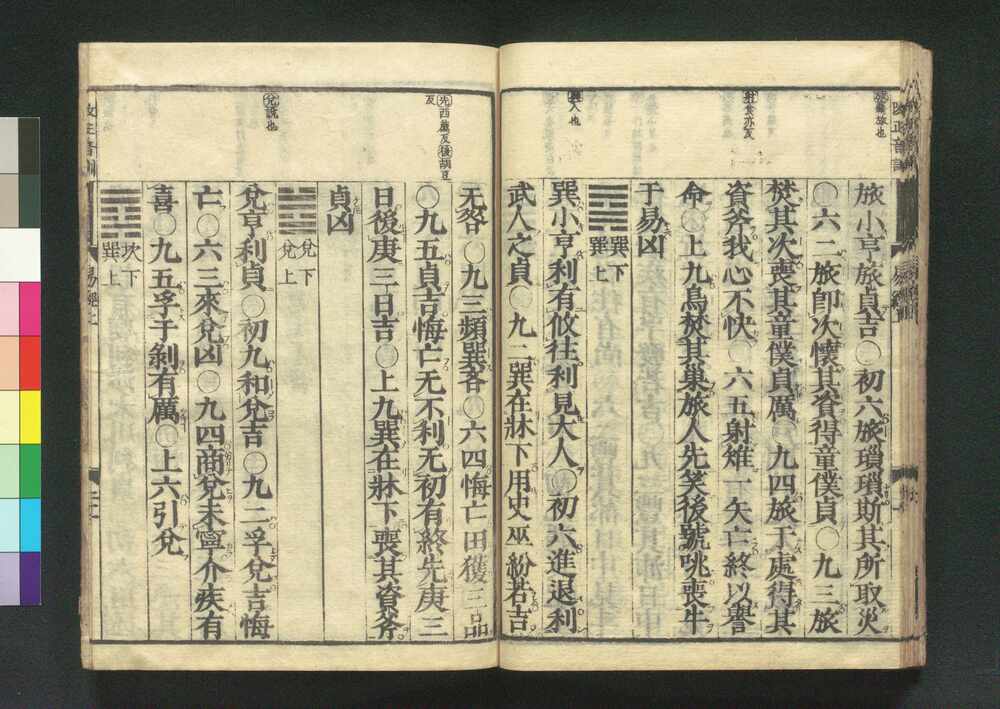 旅小亨旅貞吉○初六旅瑣瑣斯其所取災
○六二旅卽次懷其資得童僕貞○九三旅
焚其次喪其童僕貞厲○九四旅于處得其
資斧我心不快○六五射雉一矢亡終以譽
命○上九鳥焚其巢旅人先笑後號咷喪牛
于易凶
巽下
巽上
巽小亨利有攸往利見大人○初六進退利
武人之貞○九二巽在牀下用史巫紛若吉
无咎○九三頻巽吝○六四悔亡田獲三品
○九五貞吉悔亡无不利无初有終先庚三
日後庚三日吉○上九巽在牀下喪其資斧
貞凶
兌下
兌上
兌亨利貞○初九和兌吉○九二孚兌吉悔
亡○六三來兌凶○九四商兌未寧介疾有
喜○九五孚于剝有厲○上六引兌
坎下
巽上
射食亦反
巽入也
先西薦反後胡豆
反
兌說也
易經上